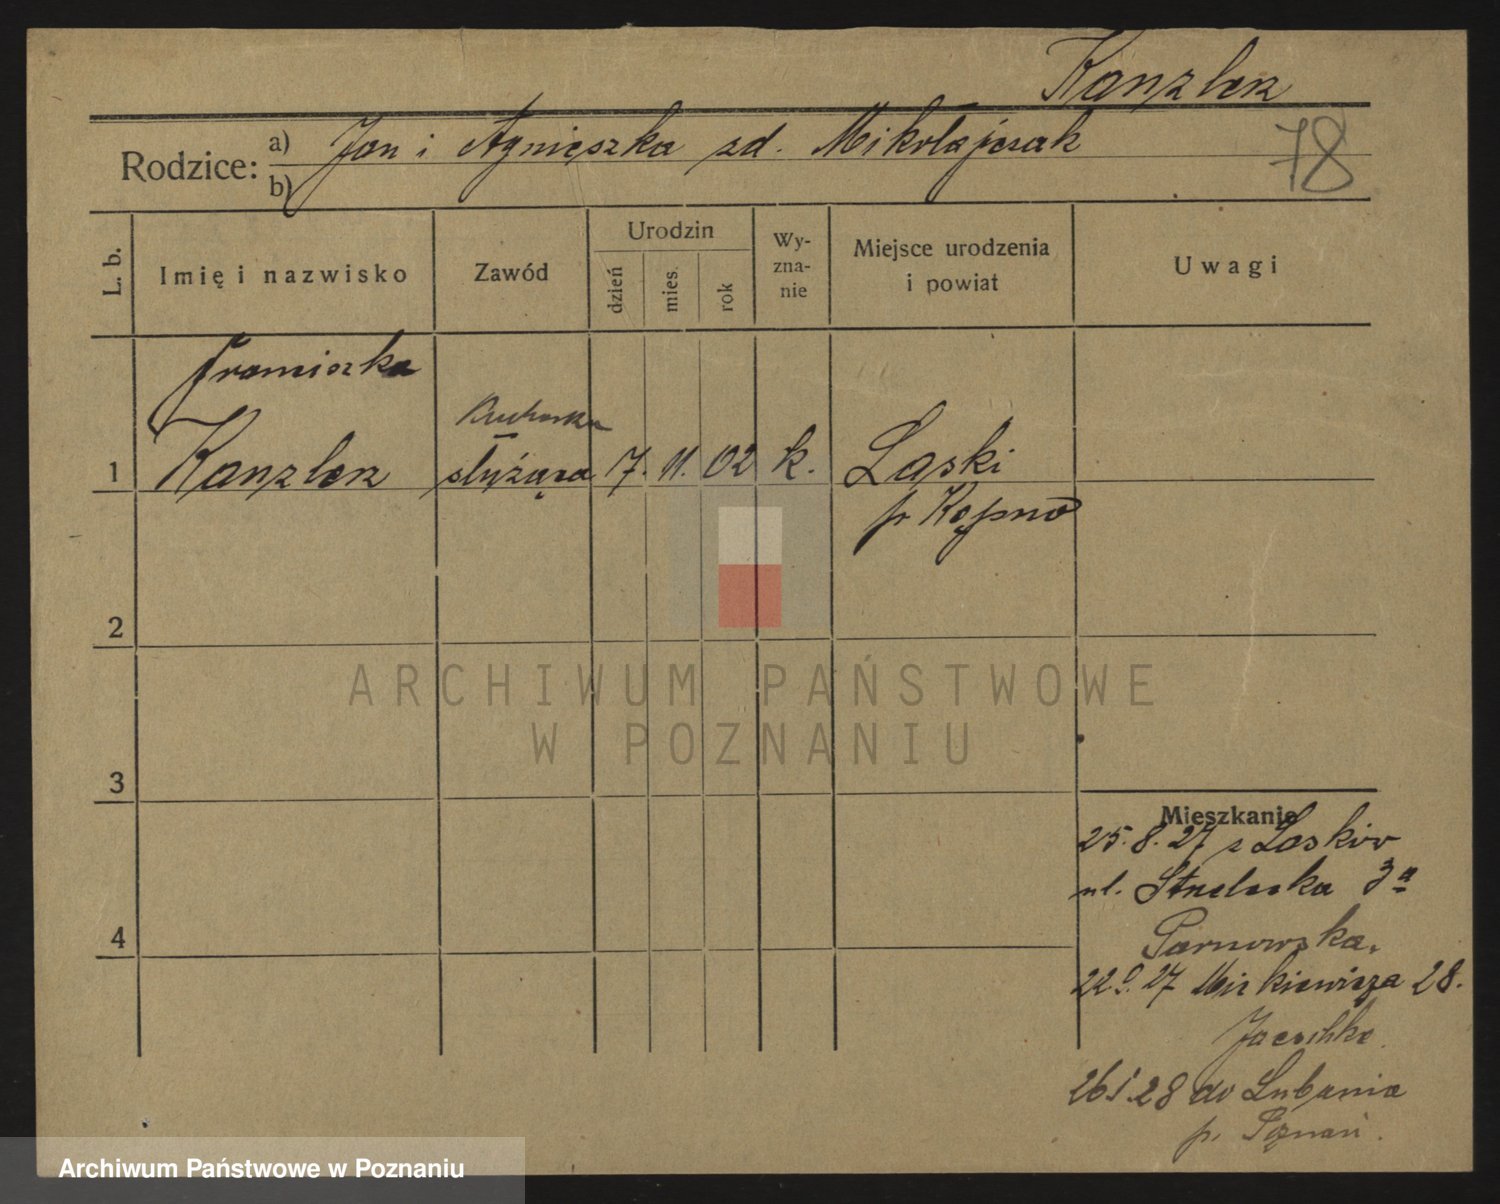 Kanzler
Rodzice:
a) Jan i Agnieszka zd. Mikołajczak
b)
78
L. b.
Imię i nazwisko
Zawód
Urodzin
dzień
mies.
rok
Wy-
zna-
nie
Miejsce urodzenia
i powiat
Uwagi
Franciszka
Kucharka
1 Kanzler służąca 7. 11. 02 k. Laski
p. Kępno
2
3
4
Mieszkanie
25. 8. 27 z Lasków
ul. Strzelecka 3a
22. 9. 27 Mickiewicza 28.
26 1. 28 do Lubonia
p. Poznań.
ARCHIWUM PAŃSTWOWE
W POZNANIU
Archiwum Państwowe w Poznaniu